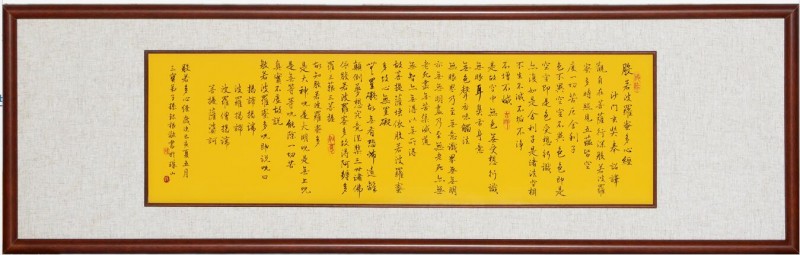 般若波羅蜜多心經
沙門玄奘奉詔譯
觀自在菩薩行深般若波羅
蜜多時照見五蘊皆空
度一切苦厄舍利子
色不異空空不異色色即是
空空即是色受想行識
亦復如是舍利子是諸法空相
不生不滅不垢不淨
不增不減
是故空中無色無受想行識
無眼耳鼻舌身意
無色聲香味觸法
無眼界乃至無意識界無無明
亦無無明盡乃至無老死亦無
老死盡無苦集滅道
無智亦無得以無所得
故菩提薩埵依般若波羅蜜
多故心無罣礙
無罣礙故無有恐怖遠離
顛倒夢想究竟涅槃三世諸佛
依般若波羅蜜多故得阿耨多
羅三藐三菩提
故知般若波羅蜜多
是大神咒是大明咒是無上咒
是無等等咒能除一切苦
真實不虛故說
般若波羅蜜多咒即說咒曰
揭諦揭諦
波羅揭諦
波羅僧揭諦
菩提薩婆訶
般若多心經
三寶弟子